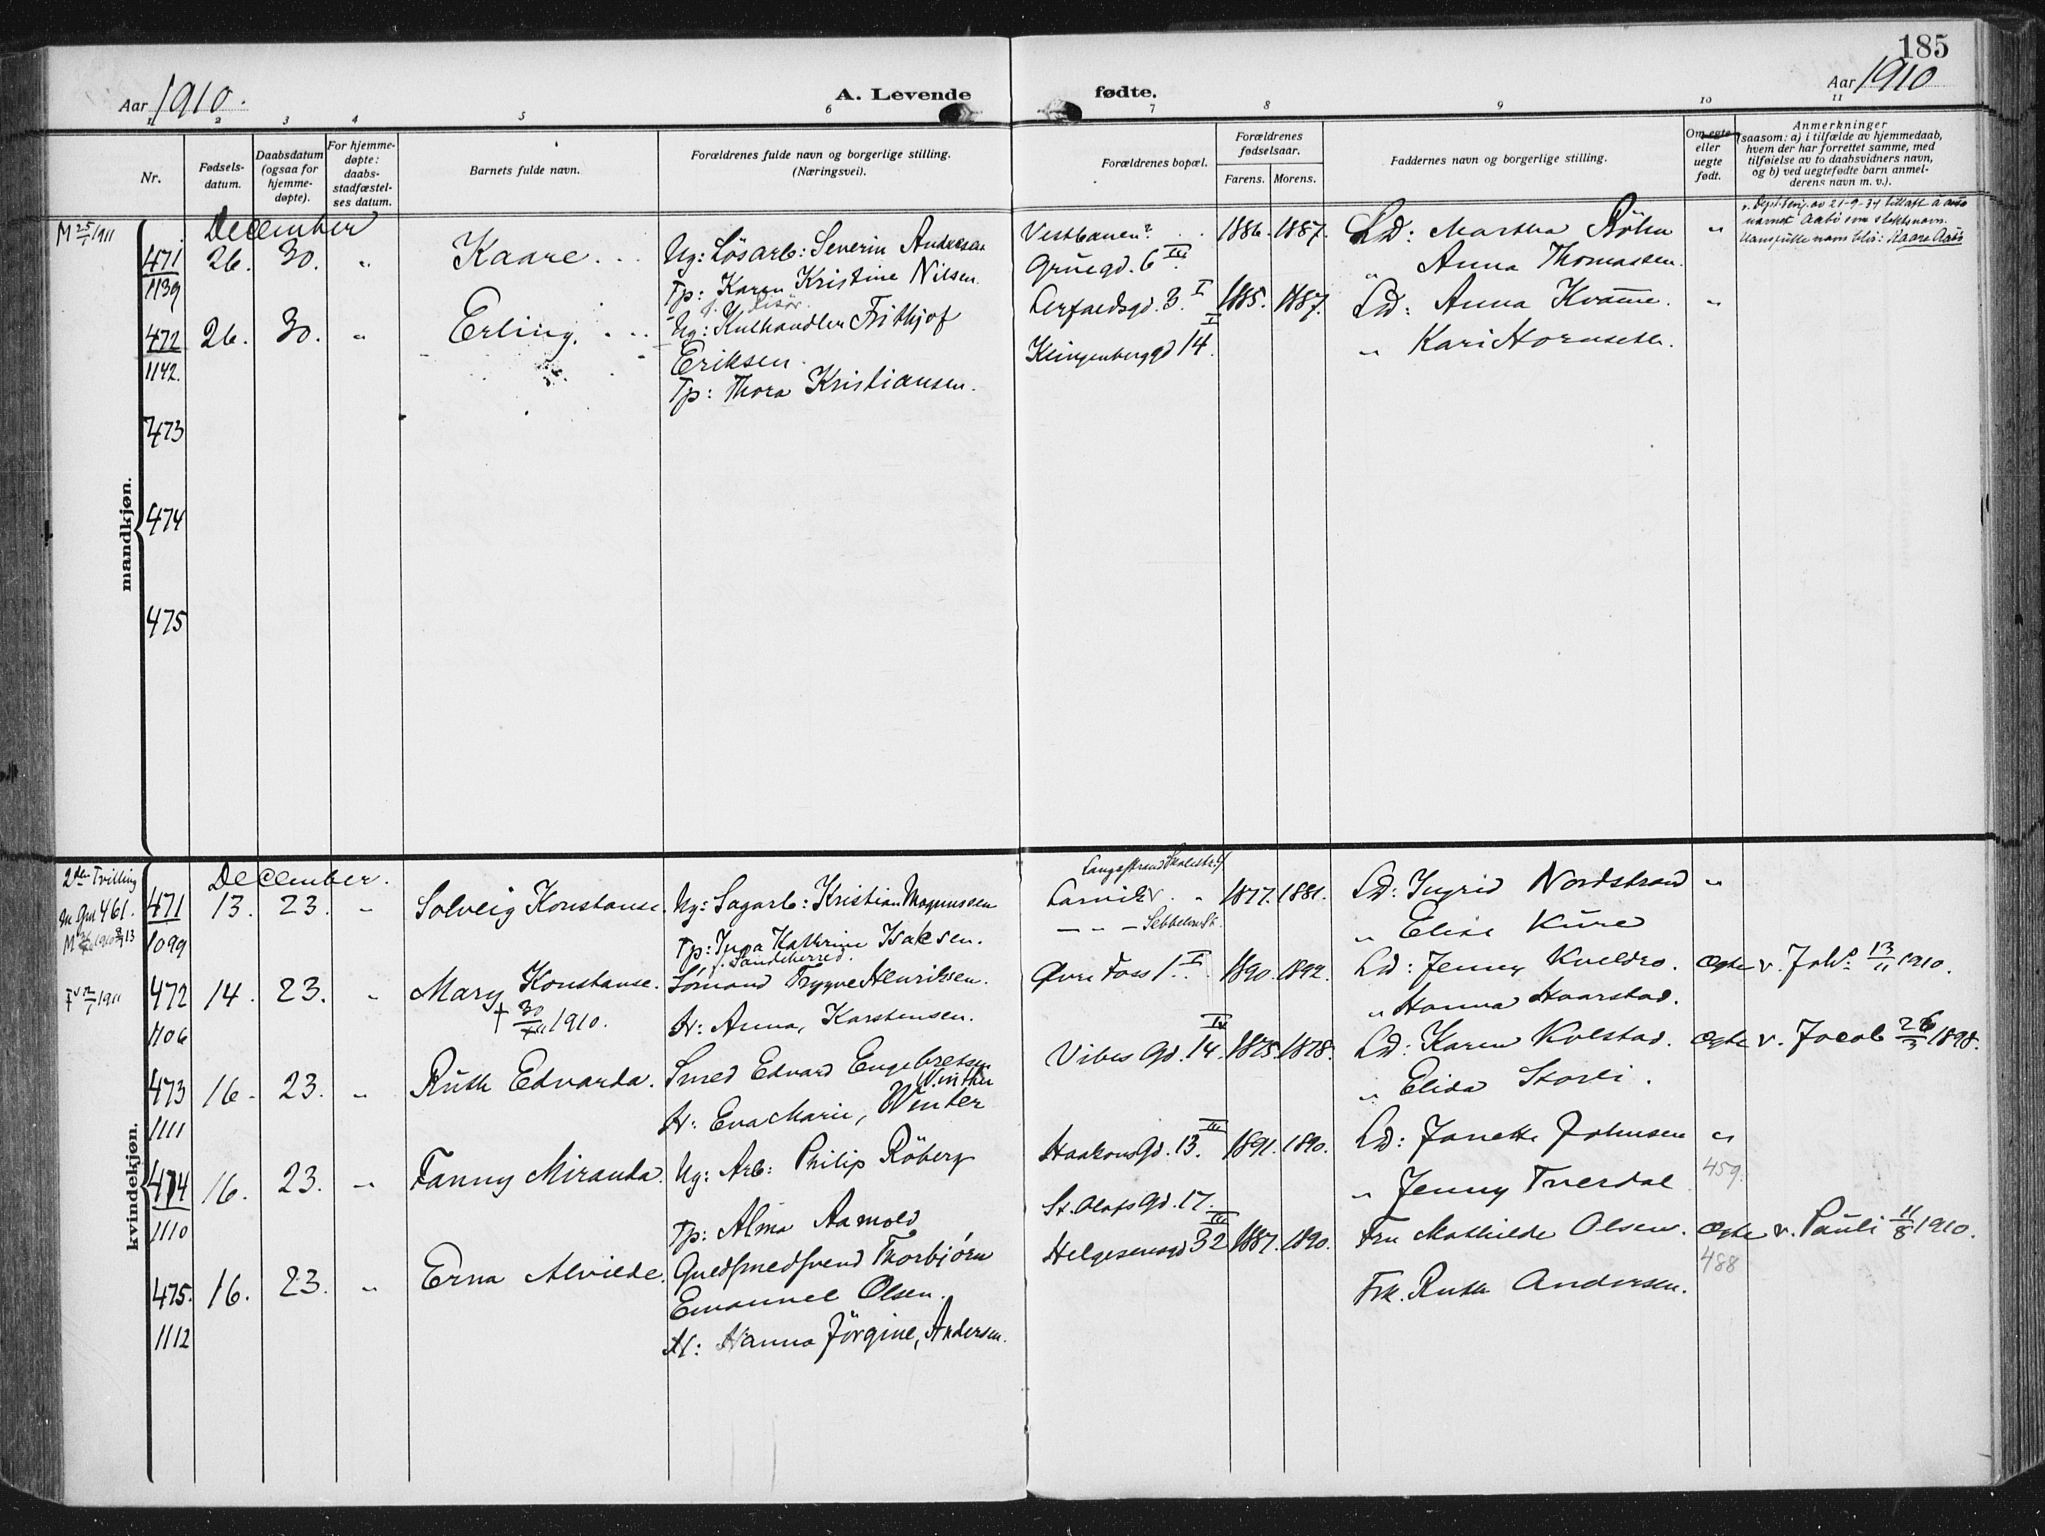 185
Aar 1910.
A. Levende
fødte.
Aar 1910
1 2 3 4 5 6 7 8 9 10 11
Nr.
Fødsels-
datum.
Daabsdatum
(ogsaa for
hjemme-
døpte).
For hjemme-
døpte:
daabs-
stadfæstel-
ses datum.
Barnets fulde navn.
Forældrenes fulde navn og borgerlige stilling.
(Næringsvei).
Forældrenes bopæl.
Forældrenes
fødselsaar.
Farens. Morens.
Faddernes navn og borgerlige stilling.
Om egte
eller
uegte
født.
Anmerkninger
(saasom: a) i tilfælde av hjemmedaab,
hvem der har forrettet samme, med
tilføielse av to daabsvidners navn,
og b) ved uegtefødte barn anmel-
derens navn m. v.).
mandkjøn.
M 25/1 1911
December
471
1139
26. 30. "
Kaare
Ug: Lösarb: Severin Andersen
Tp: Karen Kristine Nilsen
Vestbanen?
Gruegd. 6 III
1886. 1887.
Ld: Martha Röhn
" Anna Thomassen.
"
av 21-9-34 tillatt å
navnet Aabö som slektsnavn.
fulle navn blir: Kaare Aabö
472
1142.
26. 30. "
Erling.
Ug: Kulhandler Frithjof
Eriksen.
Tp: Thora Kristiansen.
3. I
Klingenberggd 14.
1885. 1887.
Ld: Anna Kvamme.
" Kari Hornseth.
"
473
474
475
kvindekjøn.
December.
2den Tvilling
461.
471
1099
13. 23. "
Solveig Konstanse.
Ug: Sagarb: Kristian Magnussen
Tp: Inga Kathrine Isaksen.
f. Sandeherred.
Langestrand
Larvik
1877. 1881.
Ld: Ingrid Nordstrand
" Elise Kure
"
472
1106
14. 23. "
Mary Konstanse.
† 30/XII 1910.
Sömand Trygve Henriksen.
H: Anna, Karstensen.
Øvre Foss 1. I
1890. 1892.
Ld: Jenny Kveldro.
" Hanna Haarstad.
Ægte v. Johs 13/11 1910.
473
1111
16. 23. "
Ruth Edvarda.
Smed Edvard Engebretsen
Winther
H: Eva Marie, Winter
Vibes Gd. 14. IV
1875. 1878.
Ld: Karen Kolstad.
" Elida Storli.
Ægte v. Jacob 26/3 1898.
474
1110
16. 23. "
Fanny Miranda.
Ug: Arb: Philip Röberg
Tp: Alma Aamold
Haakonsgd. 13. III
St. Olafs Gd. 17.
1891. 1890.
Ld: Janette Johnsen
" Jenny Tverdal
"
459.
475.
1112
16. 23. "
Erna Alvilde.
Guldsmedsvend Thorbjørn
Emanuel Olsen.
H: Hanna Jörgine, Andersen.
Helgesensgd 32 III
1887. 1890.
Fru Mathilde Olsen.
Frk. Ruth Andersen.
Ægte v. Pauli 11/8 1910.
488